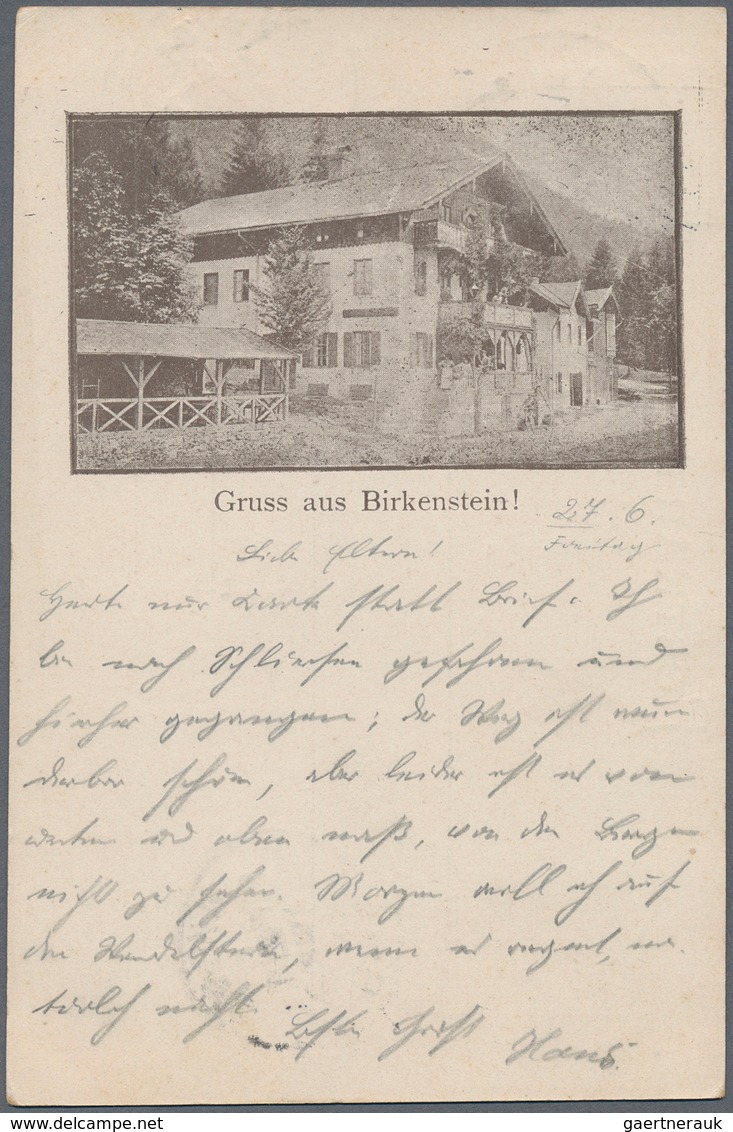 Gruss aus Birkenstein!
27.6.
Freitag
Liebe Eltern!
Heute nur Karte statt Brief. Ich
bin nach Schliersee gefahren und
hierher gegangen; der Weg ist wun
derbar schön, aber leider ist es von
unten und oben naß, von den Bergen
nicht zu sehen. Morgen will ich auf
den Wendelstein, wenn es regnet, na-
türlich nicht.
Beste Grüße
Hans.
gaertnerauk